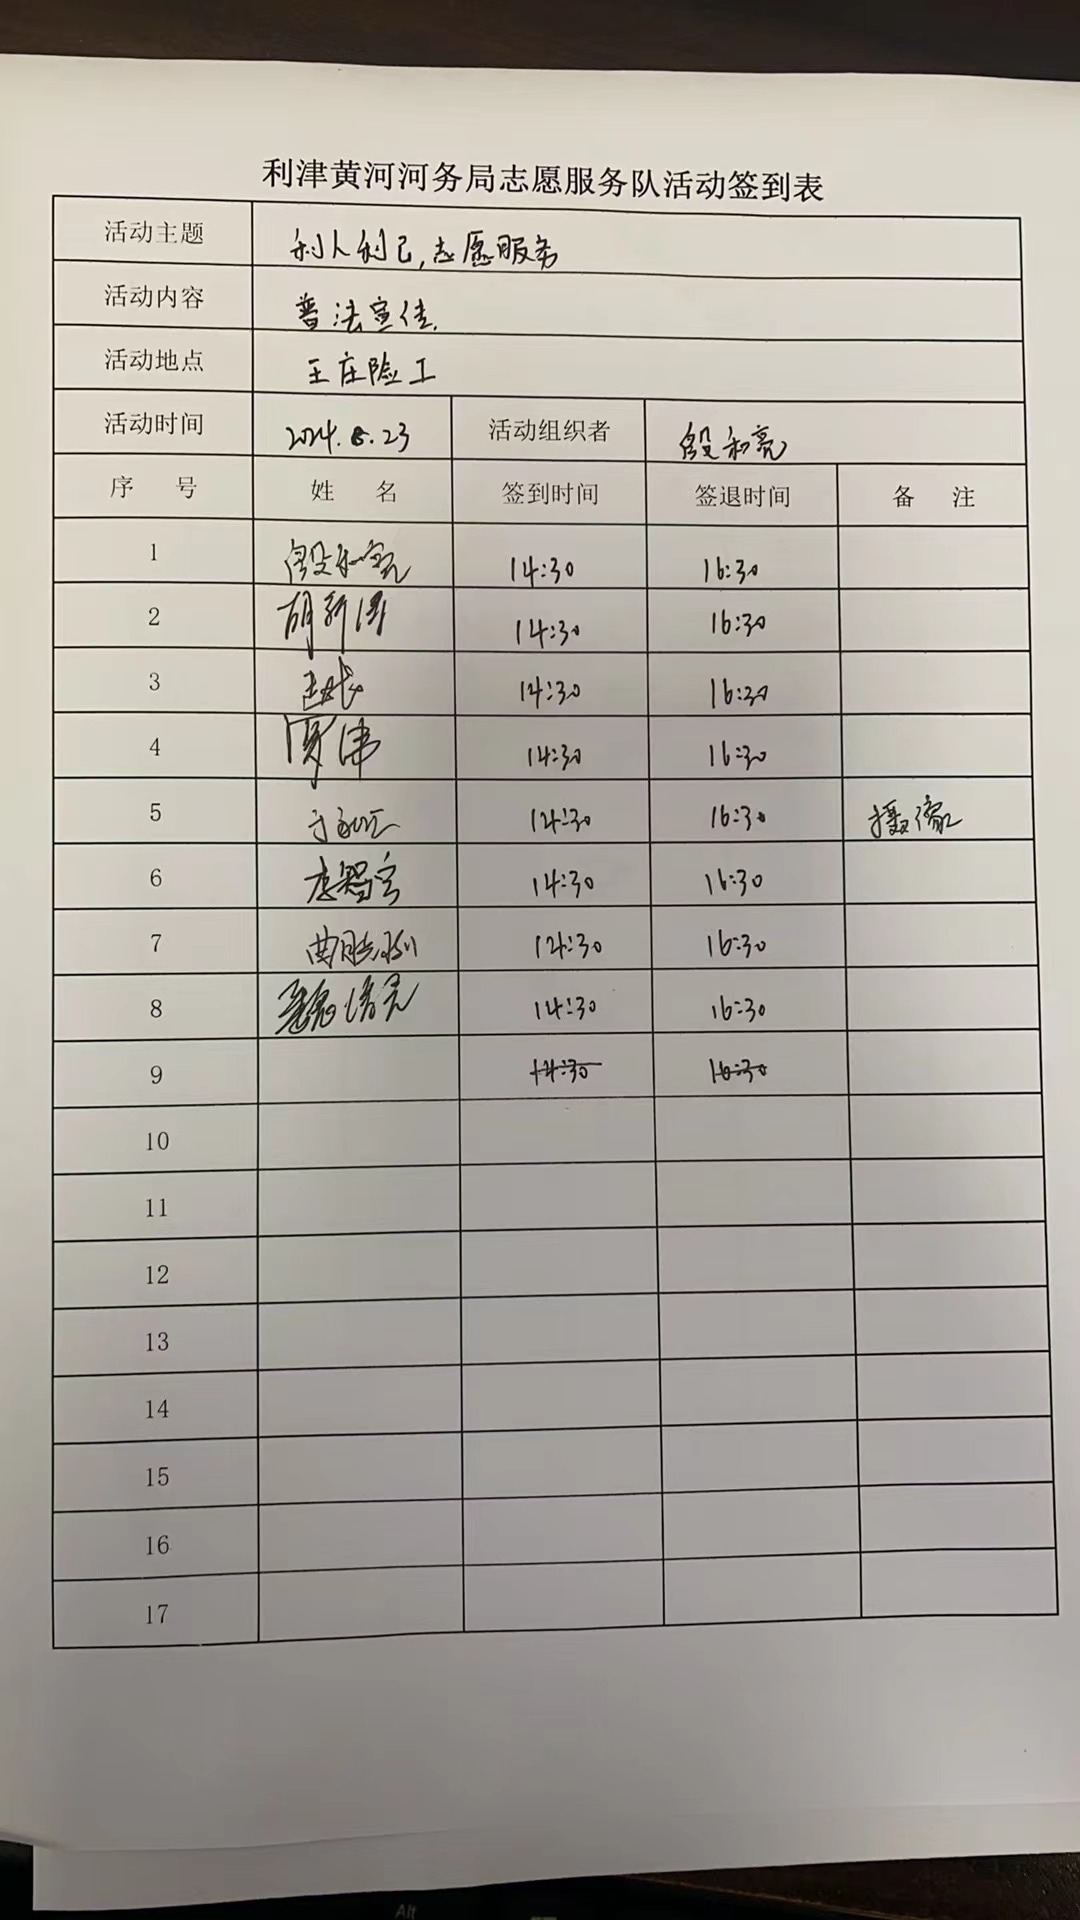 利津黄河河务局志愿服务队活动签到表
活动主题 利人利己,志愿服务
活动内容 普法宣传
活动地点 王庄险工
活动时间 2024.8.23 活动组织者 殷和亮
序 号 姓 名 签到时间 签退时间 备 注
1 殷和亮 14:30 16:30
2 胡新 14:30 16:30
3 14:30 16:30
4 贾伟 14:30 16:30
5 于 14:30 16:30 摄像
6 李智宇 14:30 16:30
7 曲胜利 14:30 16:30
8 14:30 16:30
9 14:30 16:30
10
11
12
13
14
15
16
17
Alt